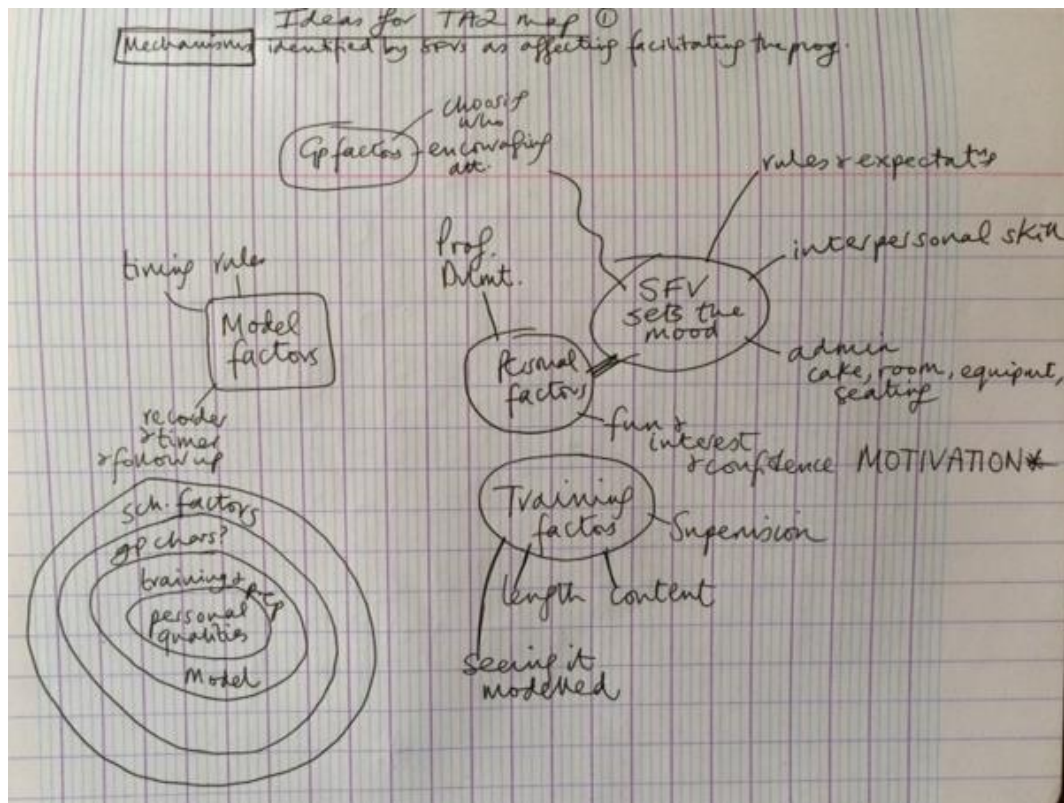 Ideas for TA2 map ①
Mechanisms identified by SFVs as affecting facilitating the prog.
choosing
who
Gp factors
encouraging
att.
rules & expectatns
interpersonal skill
SFV
sets the
mood
admin
cake, room, equipmt,
seating
Prof.
Dvlmt.
Personal
factors
fun &
interest
& confidence MOTIVATION*
timing rules
Model
factors
recorder
& timer
& follow up
Training
factors
Supervision
length content
seeing it
modelled
sch. factors
gp chars?
training & prep
personal
qualities
Model